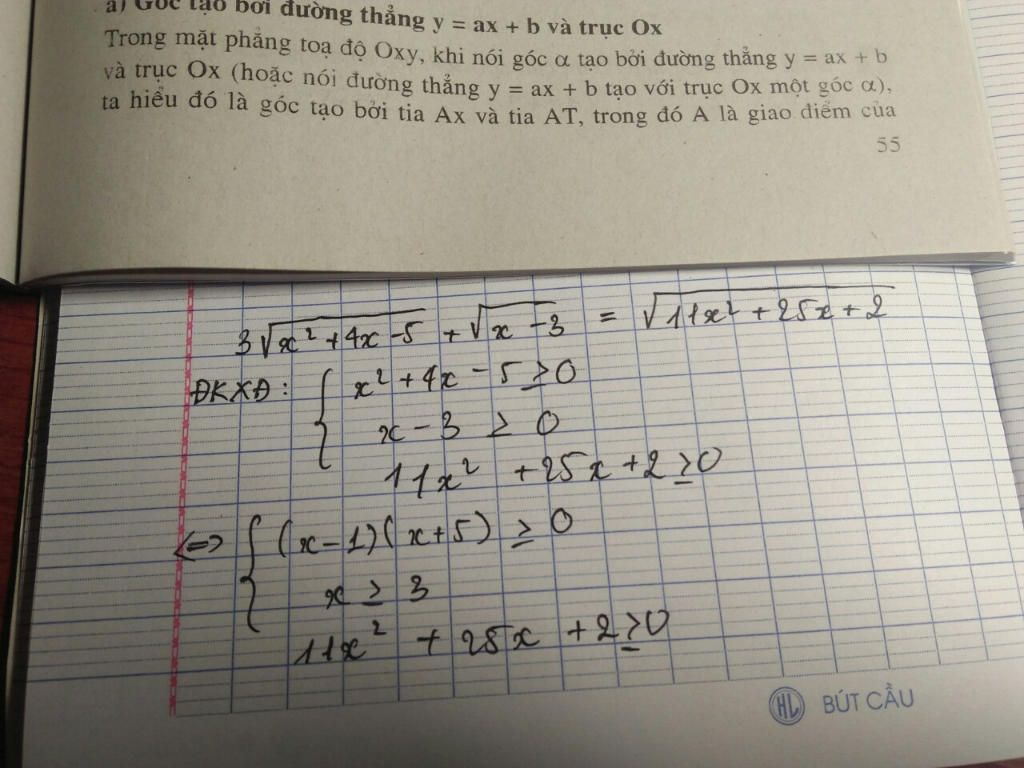 a) Góc tạo bởi đường thẳng y = ax + b và trục Ox
Trong mặt phẳng toạ độ Oxy, khi nói góc α tạo bởi đường thẳng y = ax + b
và trục Ox (hoặc nói đường thẳng y = ax + b tạo với trục Ox một góc α),
ta hiểu đó là góc tạo bởi tia Ax và tia AT, trong đó A là giao điểm của
55
3√(x² + 4x - 5) + √(x - 3) = √(11x² + 25x + 2)
ĐKXĐ: { x² + 4x - 5 ≥ 0
x - 3 ≥ 0
11x² + 25x + 2 ≥ 0
<=> { (x - 1)(x + 5) ≥ 0
x ≥ 3
11x² + 25x + 2 ≥ 0
HL BÚT CẦU